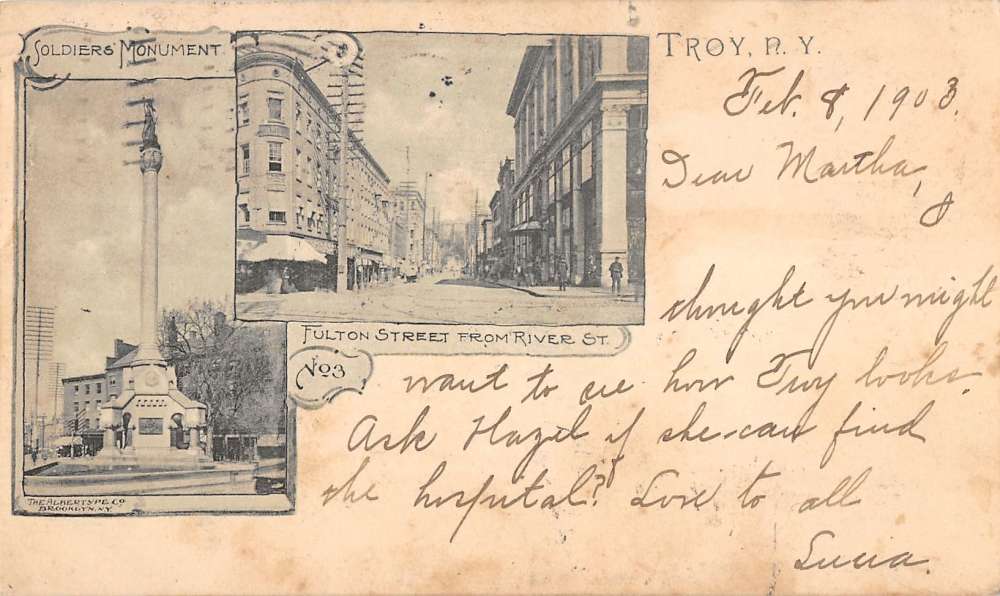 SOLDIERS' MONUMENT.
TROY, N.Y.
Feb. 8, 1903.
Dear Martha,
thought you might
FULTON STREET FROM RIVER ST.
No3
want to see how Troy looks.
Ask Hazel if she can find
the hospital? Love to all
Lucia.
THE ALBERTYPE CO.
BROOKLYN, N.Y.